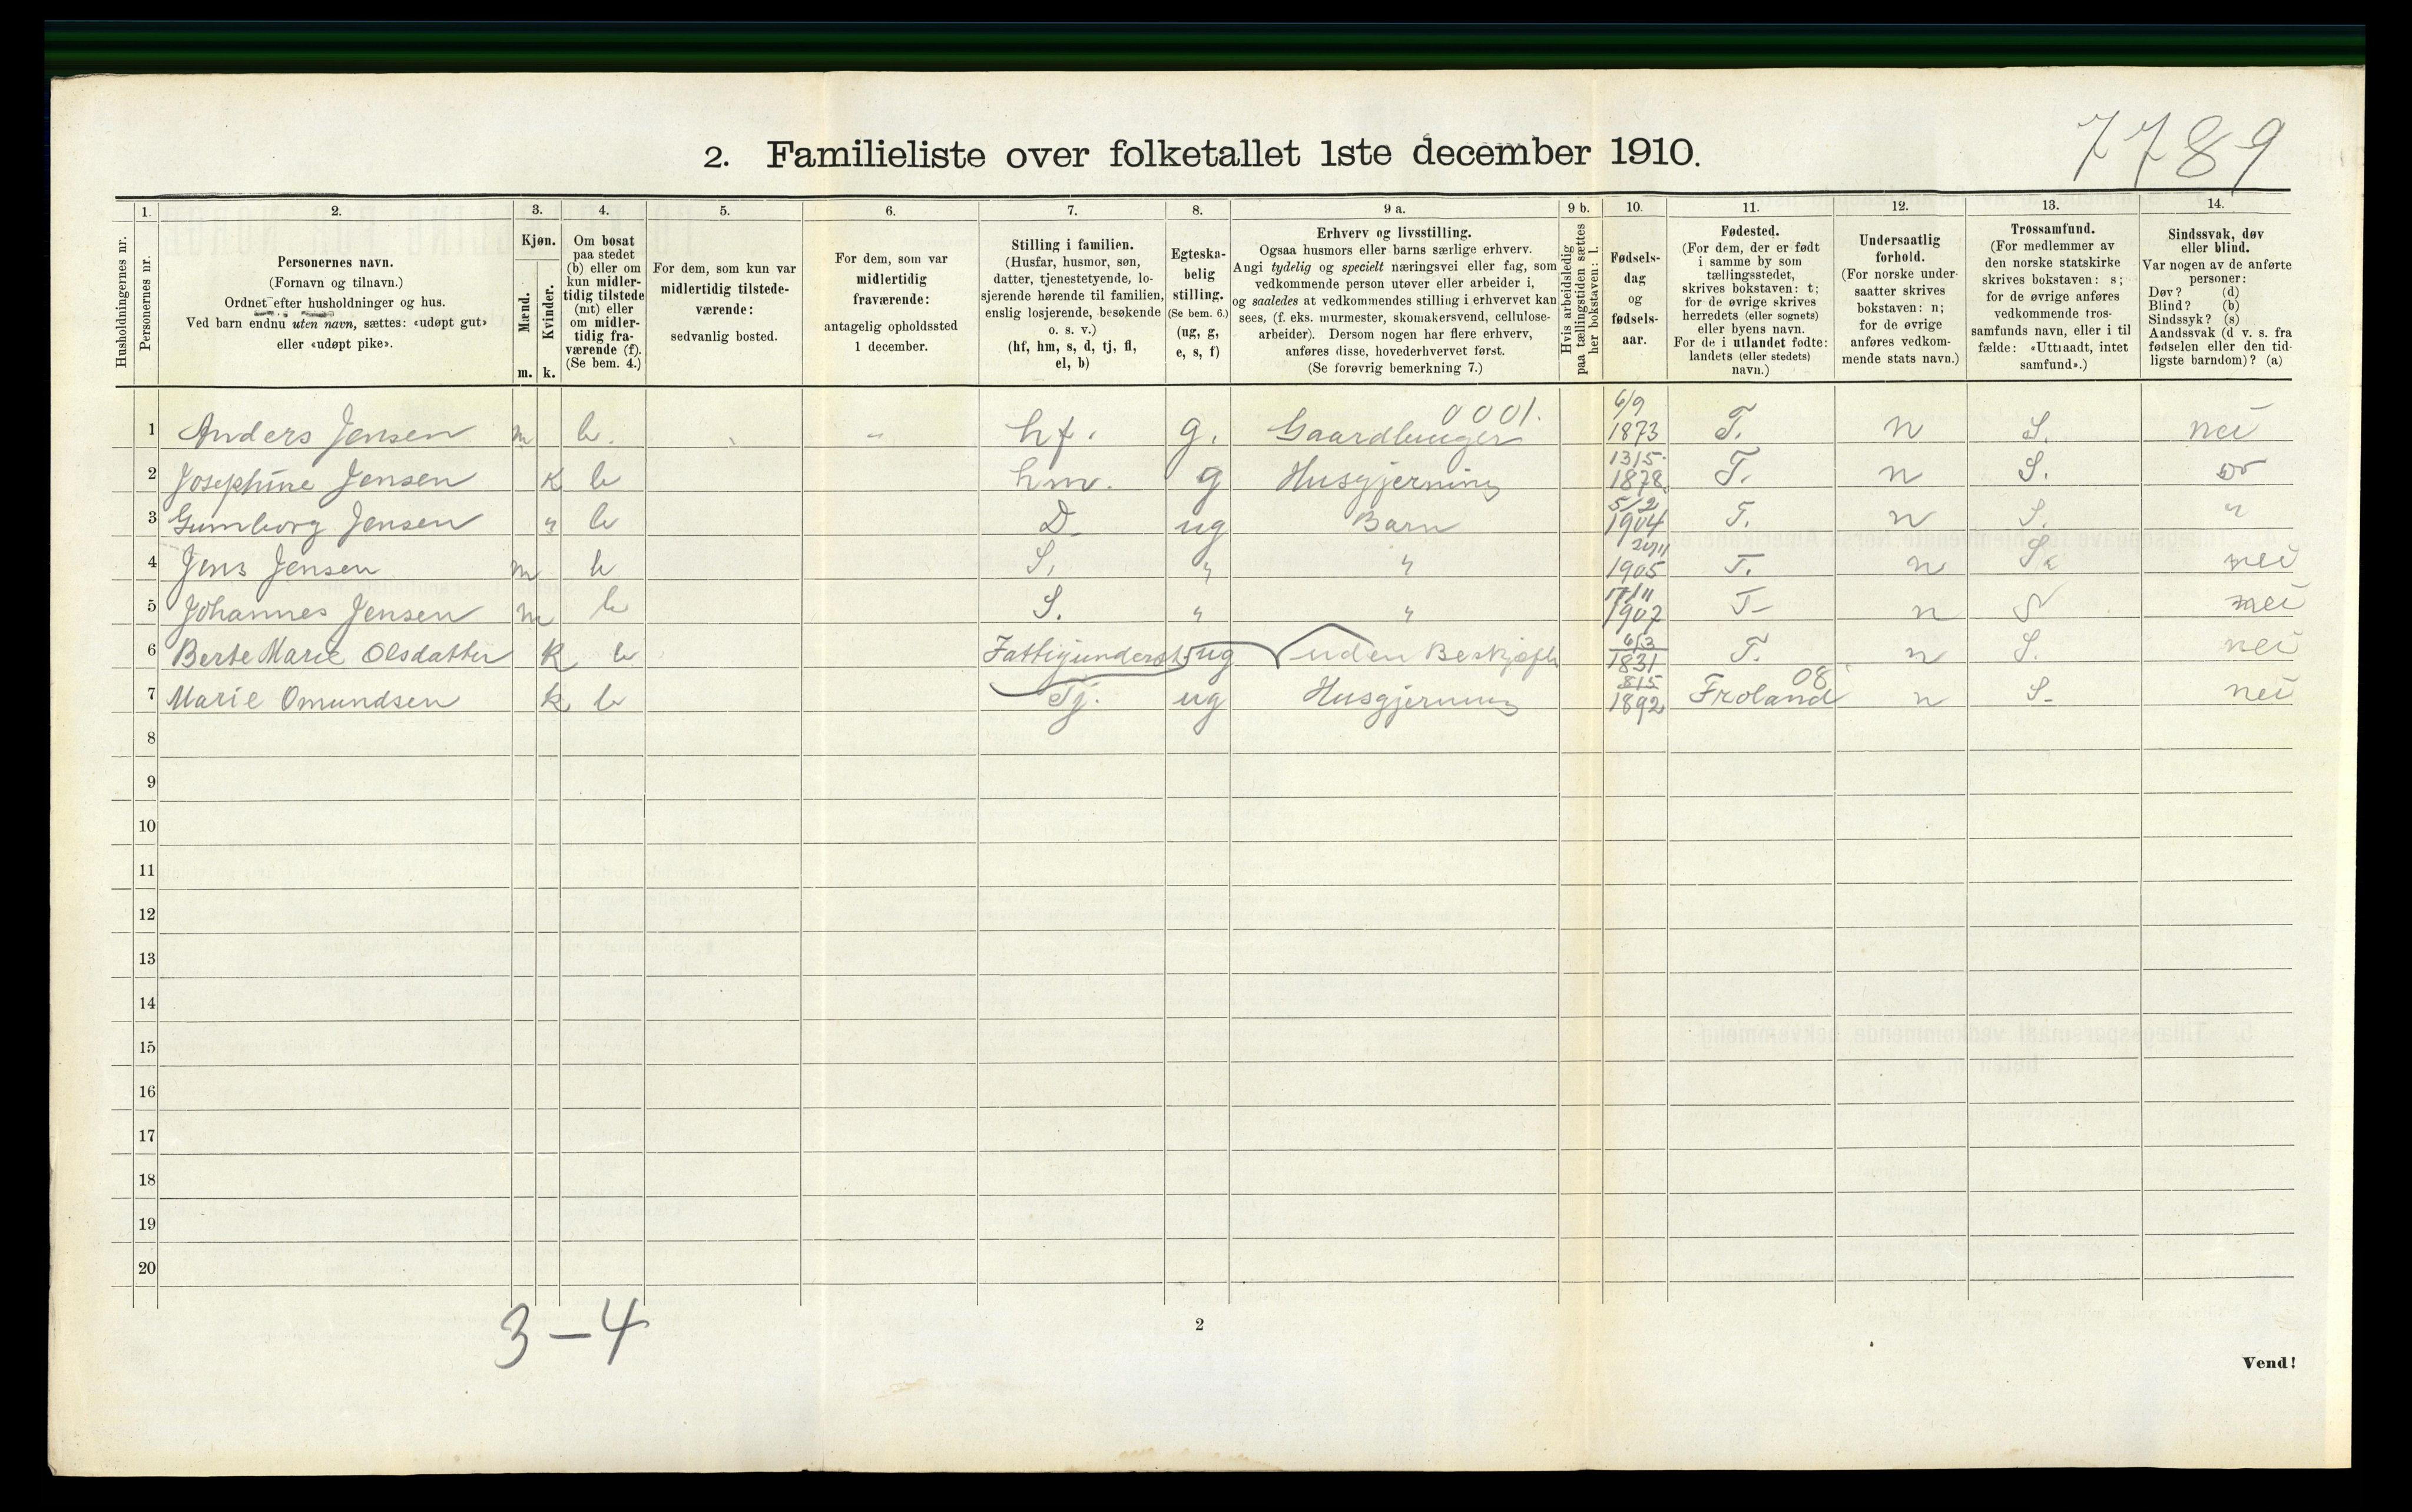 7789
2. Familieliste over folketallet 1ste december 1910.
1. 2. 3. 4. 5. 6. 7. 8. 9 a. 9 b. 10. 11. 12. 13. 14.
Husholdningernes nr.
Personernes nr.
Personernes navn.
(Fornavn og tilnavn.)
Ordnet efter husholdninger og hus.
Ved barn endnu uten navn, sættes: «udøpt gut»
eller «udøpt pike».
Kjøn.
Mænd.
Kvinder.
m. k.
Om bosat
paa stedet
(b) eller om
kun midler-
tidig tilstede
(mt) eller
om midler-
tidig fra-
værende (f).
(Se bem. 4.)
For dem, som kun var
midlertidig tilstede-
værende:
sedvanlig bosted.
For dem, som var
midlertidig
fraværende:
antagelig opholdssted
1 december.
Stilling i familien.
(Husfar, husmor, søn,
datter, tjenestetyende, lo-
sjerende hørende til familien,
enslig losjerende, besøkende
o. s. v.)
(hf, hm, s, d, tj, fl,
el, b)
Egteska-
belig
stilling.
(Se bem. 6.)
(ug, g,
e, s, f)
Erhverv og livsstilling.
Ogsaa husmors eller barns særlige erhverv.
Angi tydelig og specielt næringsvei eller fag, som
vedkommende person utøver eller arbeider i,
og saaledes at vedkommendes stilling i erhvervet kan
sees, (f. eks. murmester, skomakersvend, cellulose-
arbeider). Dersom nogen har flere erhverv,
anføres disse, hovederhvervet først.
(Se forøvrig bemerkning 7.)
Hvis arbeidsledig
paa tællingstiden sættes
her bokstaven: l.
Fødsels-
dag
og
fødsels-
aar.
Fødested.
(For dem, der er født
i samme by som
tællingsstedet,
skrives bokstaven: t;
for de øvrige skrives
herredets (eller sognets)
eller byens navn.
For de i utlandet fødte:
landets (eller stedets)
navn.)
Undersaatlig
forhold.
(For norske under-
saatter skrives
bokstaven: n;
for de øvrige
anføres vedkom-
mende stats navn.)
Trossamfund.
(For medlemmer av
den norske statskirke
skrives bokstaven: s;
for de øvrige anføres
vedkommende tros-
samfunds navn, eller i til
fælde: «Uttraadt, intet
samfund».)
Sindssvak, døv
eller blind.
Var nogen av de anførte
personer:
Døv? (d)
Blind? (b)
Sindssyk? (s)
Aandssvak (d v. s. fra
fødselen eller den tid-
ligste barndom)? (a)
0001. 6/9
1 Anders Jensen m b. hf. g. Gaardbruger 1873 T. n S. nei
13/5
2 Josephine Jensen K b hm. g Husgjerning 1878 T. n S.
5/2
3 Gunborg Jensen " b D. ug Barn 1904 T. n S. "
20/11
4 Jens Jensen m b S. " " 1905 T. n S. nei
17/11
5 Johannes Jensen m b S. " " 1907 T- n S nei
6/3
6 Berte Marie Olsdatter K b Fattigunderst. ug uden Beskjæft 1831 T. n S. nei
8/5 08
7 Marie Omundsen k b Tj. ug Husgjerning 1892 Froland n S- nei
8
9
10
11
12
13
14
15
16
17
18
19
20
3-4
2
Vend!